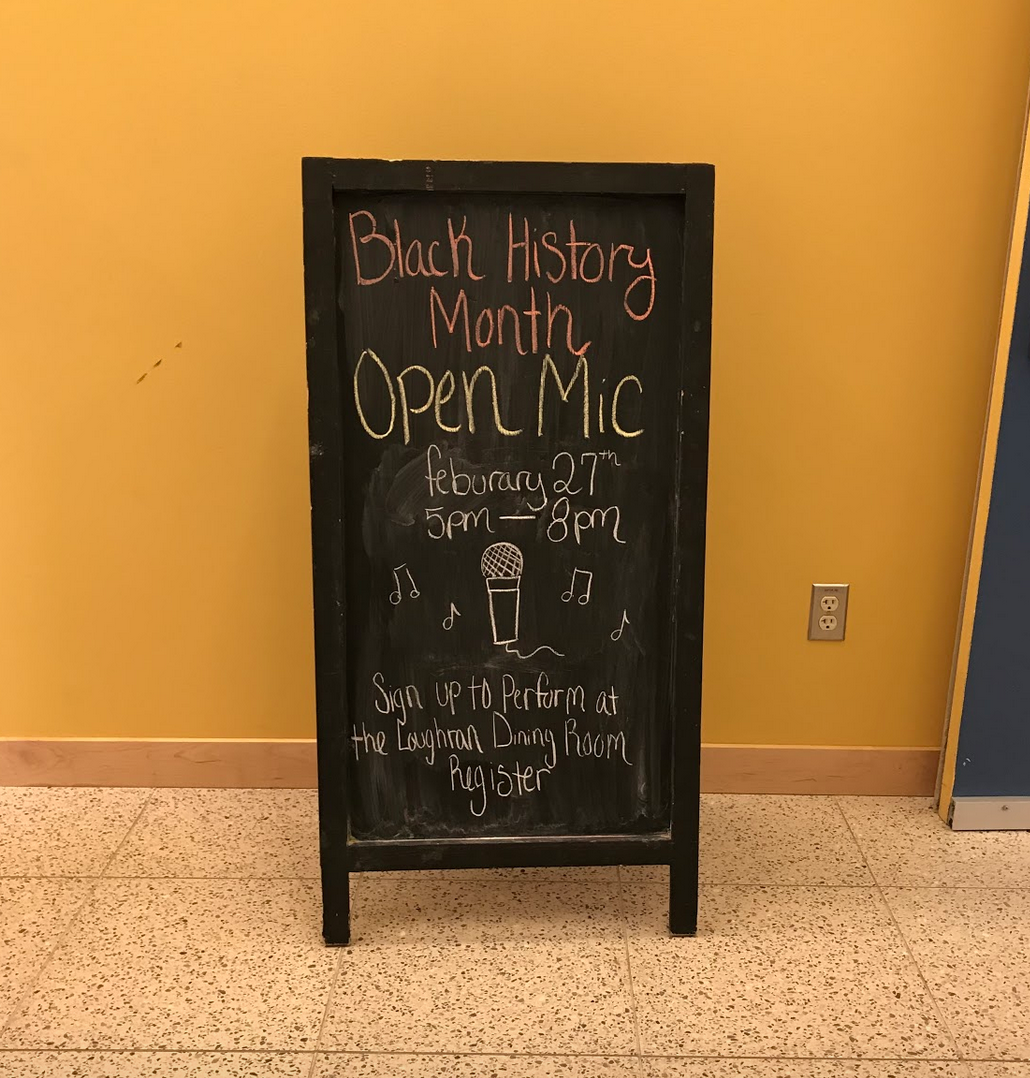 Black History
Month
Open Mic
feburary 27th
5pm — 8pm
Sign up to Perform at
the Loughran Dining Room
Register